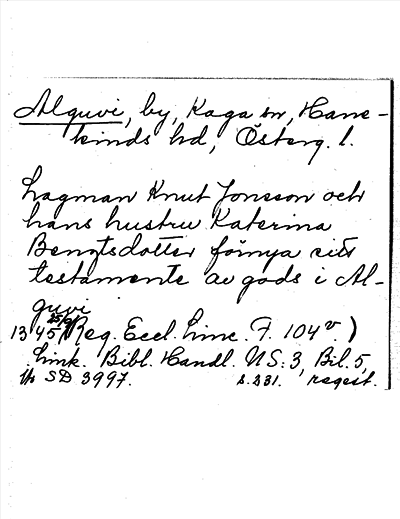 Alguvi, by, Kaga sn, Hane-
kinds hd, Österg. l.
Lagman Knut Jonsson och
hans hustru Katerina
Bengtsdotter förnya sitt
testamente av gods i Al-
guvi
1345 25/6 (Reg. Eccl. Linc. F. 104 v.)
Link. Bibl. Handl. NS: 3, Bil. 5,
SD 3997. s. 231. regest.